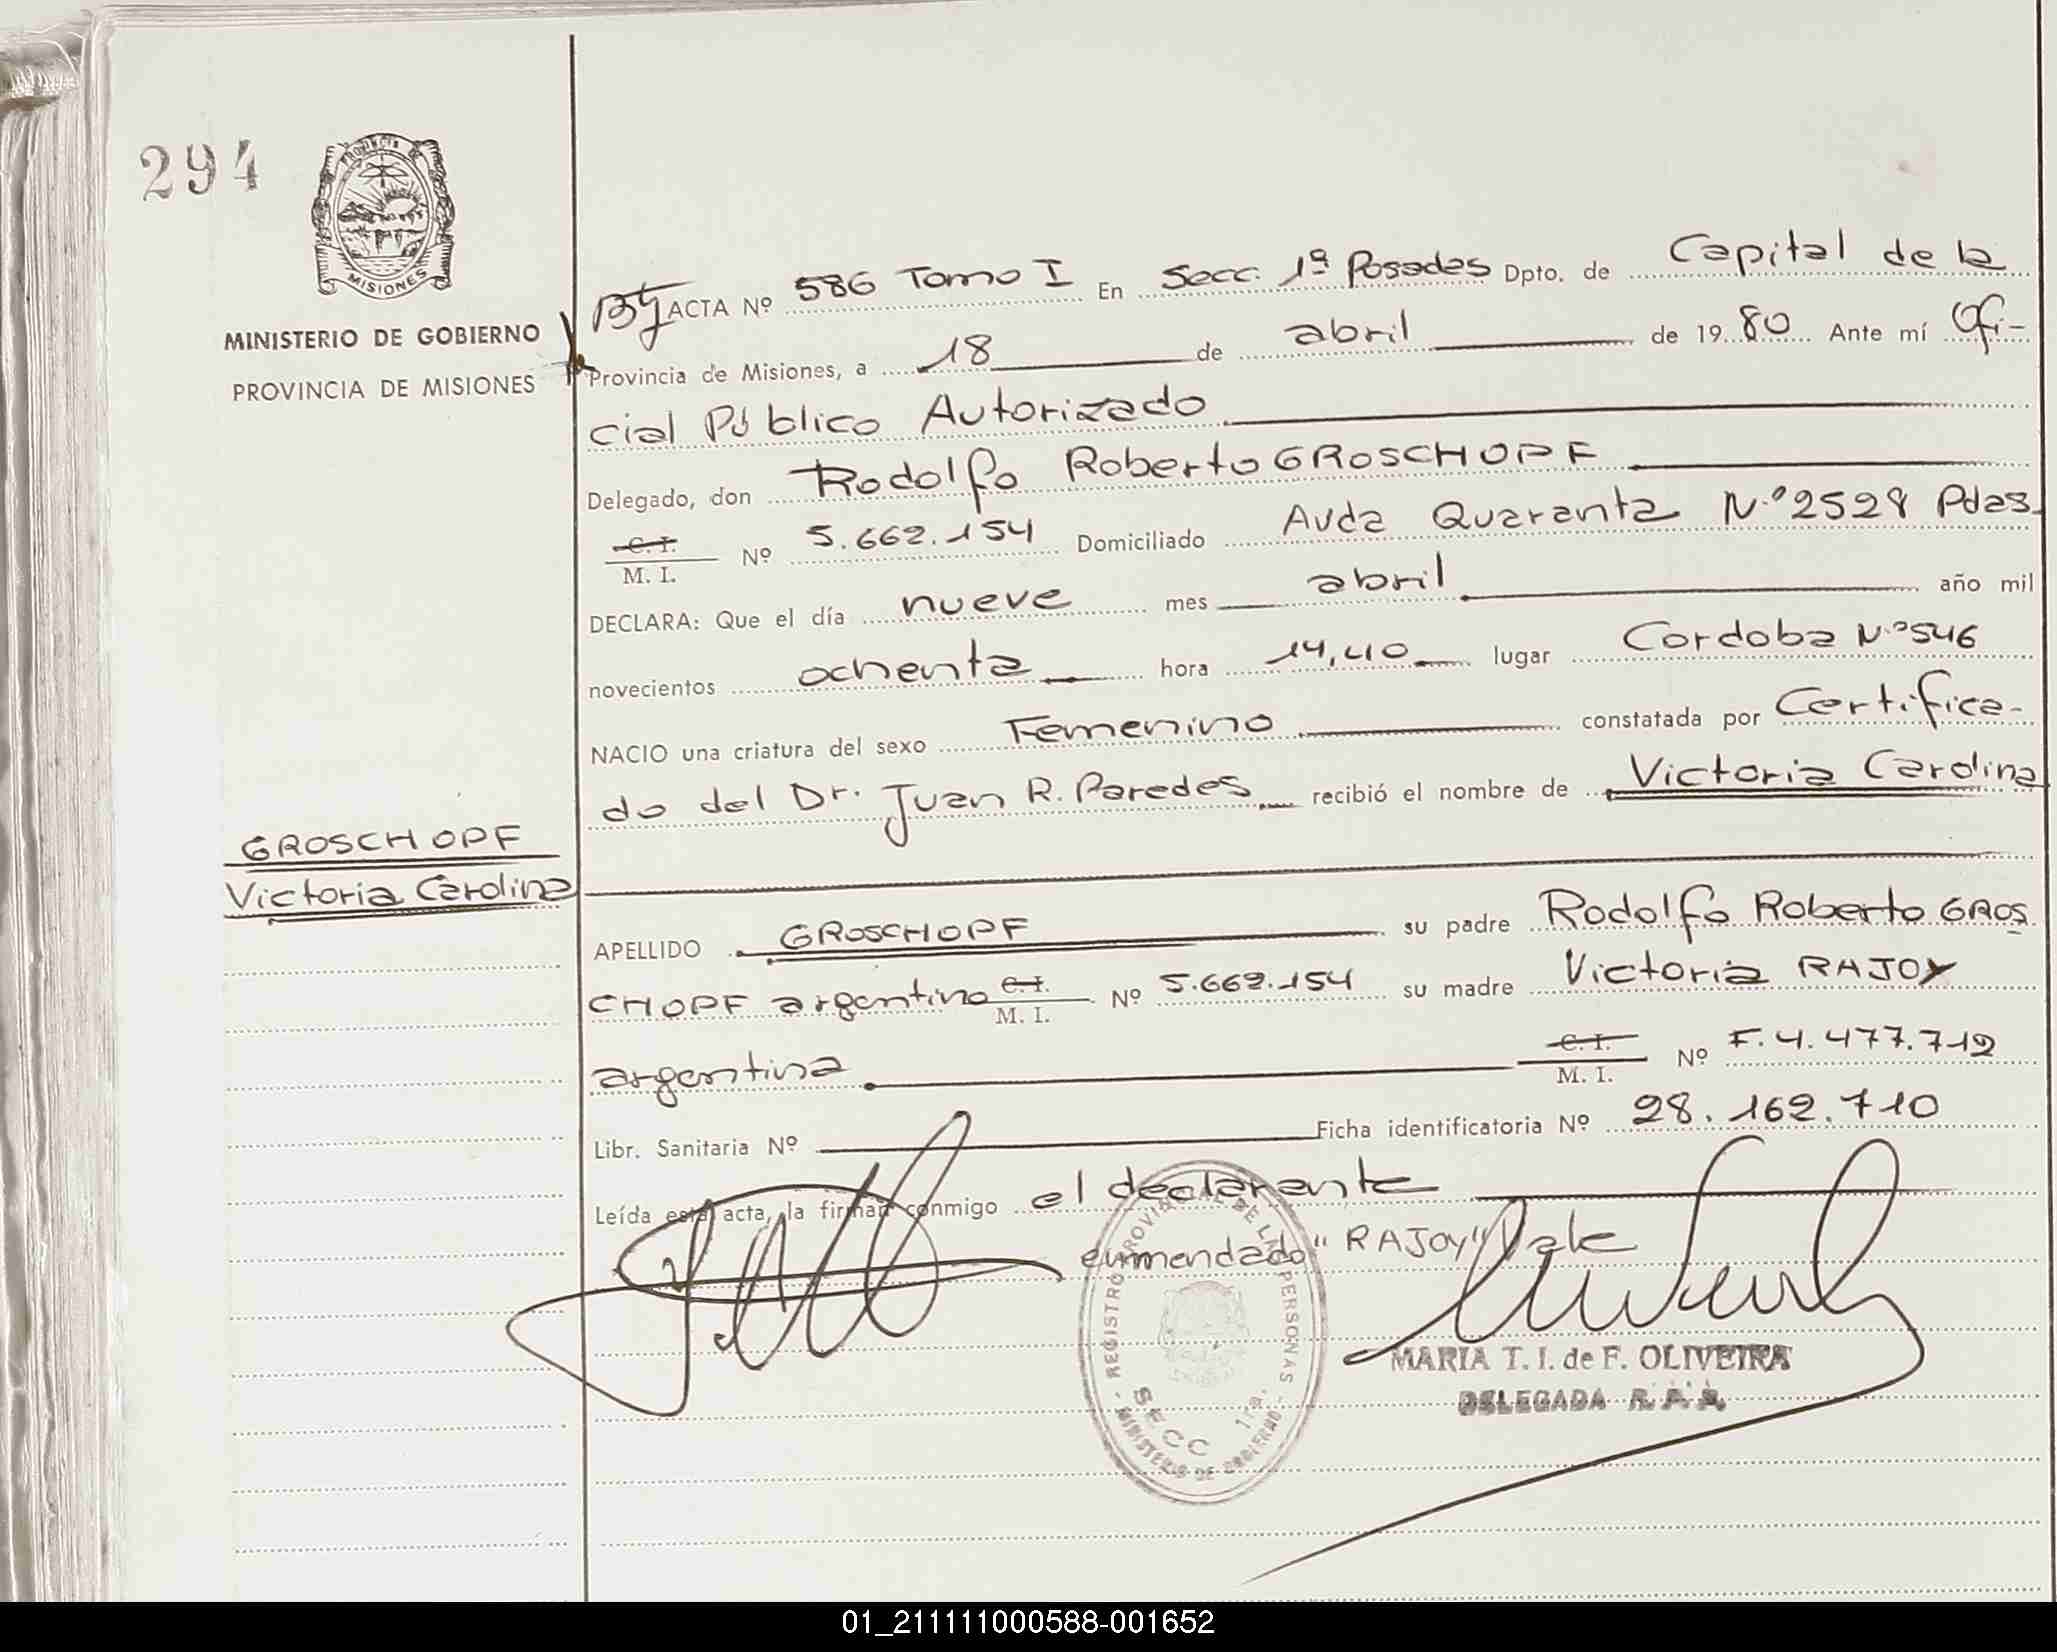 294
PROVINCIA DE
MISIONES
MINISTERIO DE GOBIERNO
PROVINCIA DE MISIONES
ACTA Nº 586 Tomo I En Secc. 1ª Posadas Dpto. de Capital de la
Provincia de Misiones, a 18 de abril de 1980 Ante mí Ofi-
cial Público Autorizado
Delegado, don Rodolfo Roberto GROSCHOPF
C. I.
M. I. Nº 5.662.154 Domiciliado Avda Quaranta N.º 2528 Pdas.
DECLARA: Que el día nueve mes abril año mil
novecientos ochenta hora 14,40 lugar Cordoba N.º 546
NACIO una criatura del sexo Femenino constatada por Certifica-
do del Dr. Juan R. Paredes recibió el nombre de Victoria Carolina
GROSCHOPF
Victoria Carolina
APELLIDO GROSCHOPF su padre Rodolfo Roberto GROS
CHOPF argentino C. I.
M. I. Nº 5.662.154 su madre Victoria RAJOY
argentina C. I.
M. I. Nº F. 4.477.712
Libr. Sanitaria Nº Ficha identificatoria Nº 28.162.710
Leída esta acta, la firman conmigo el declarante
enmendado "RAJOY" Vale
REGISTRO PROVINCIAL DE LAS PERSONAS
SECC 1ra.
MINISTERIO DE GOBIERNO
MARIA T. I. de F. OLIVEIRA
DELEGADA
01_211111000588-001652